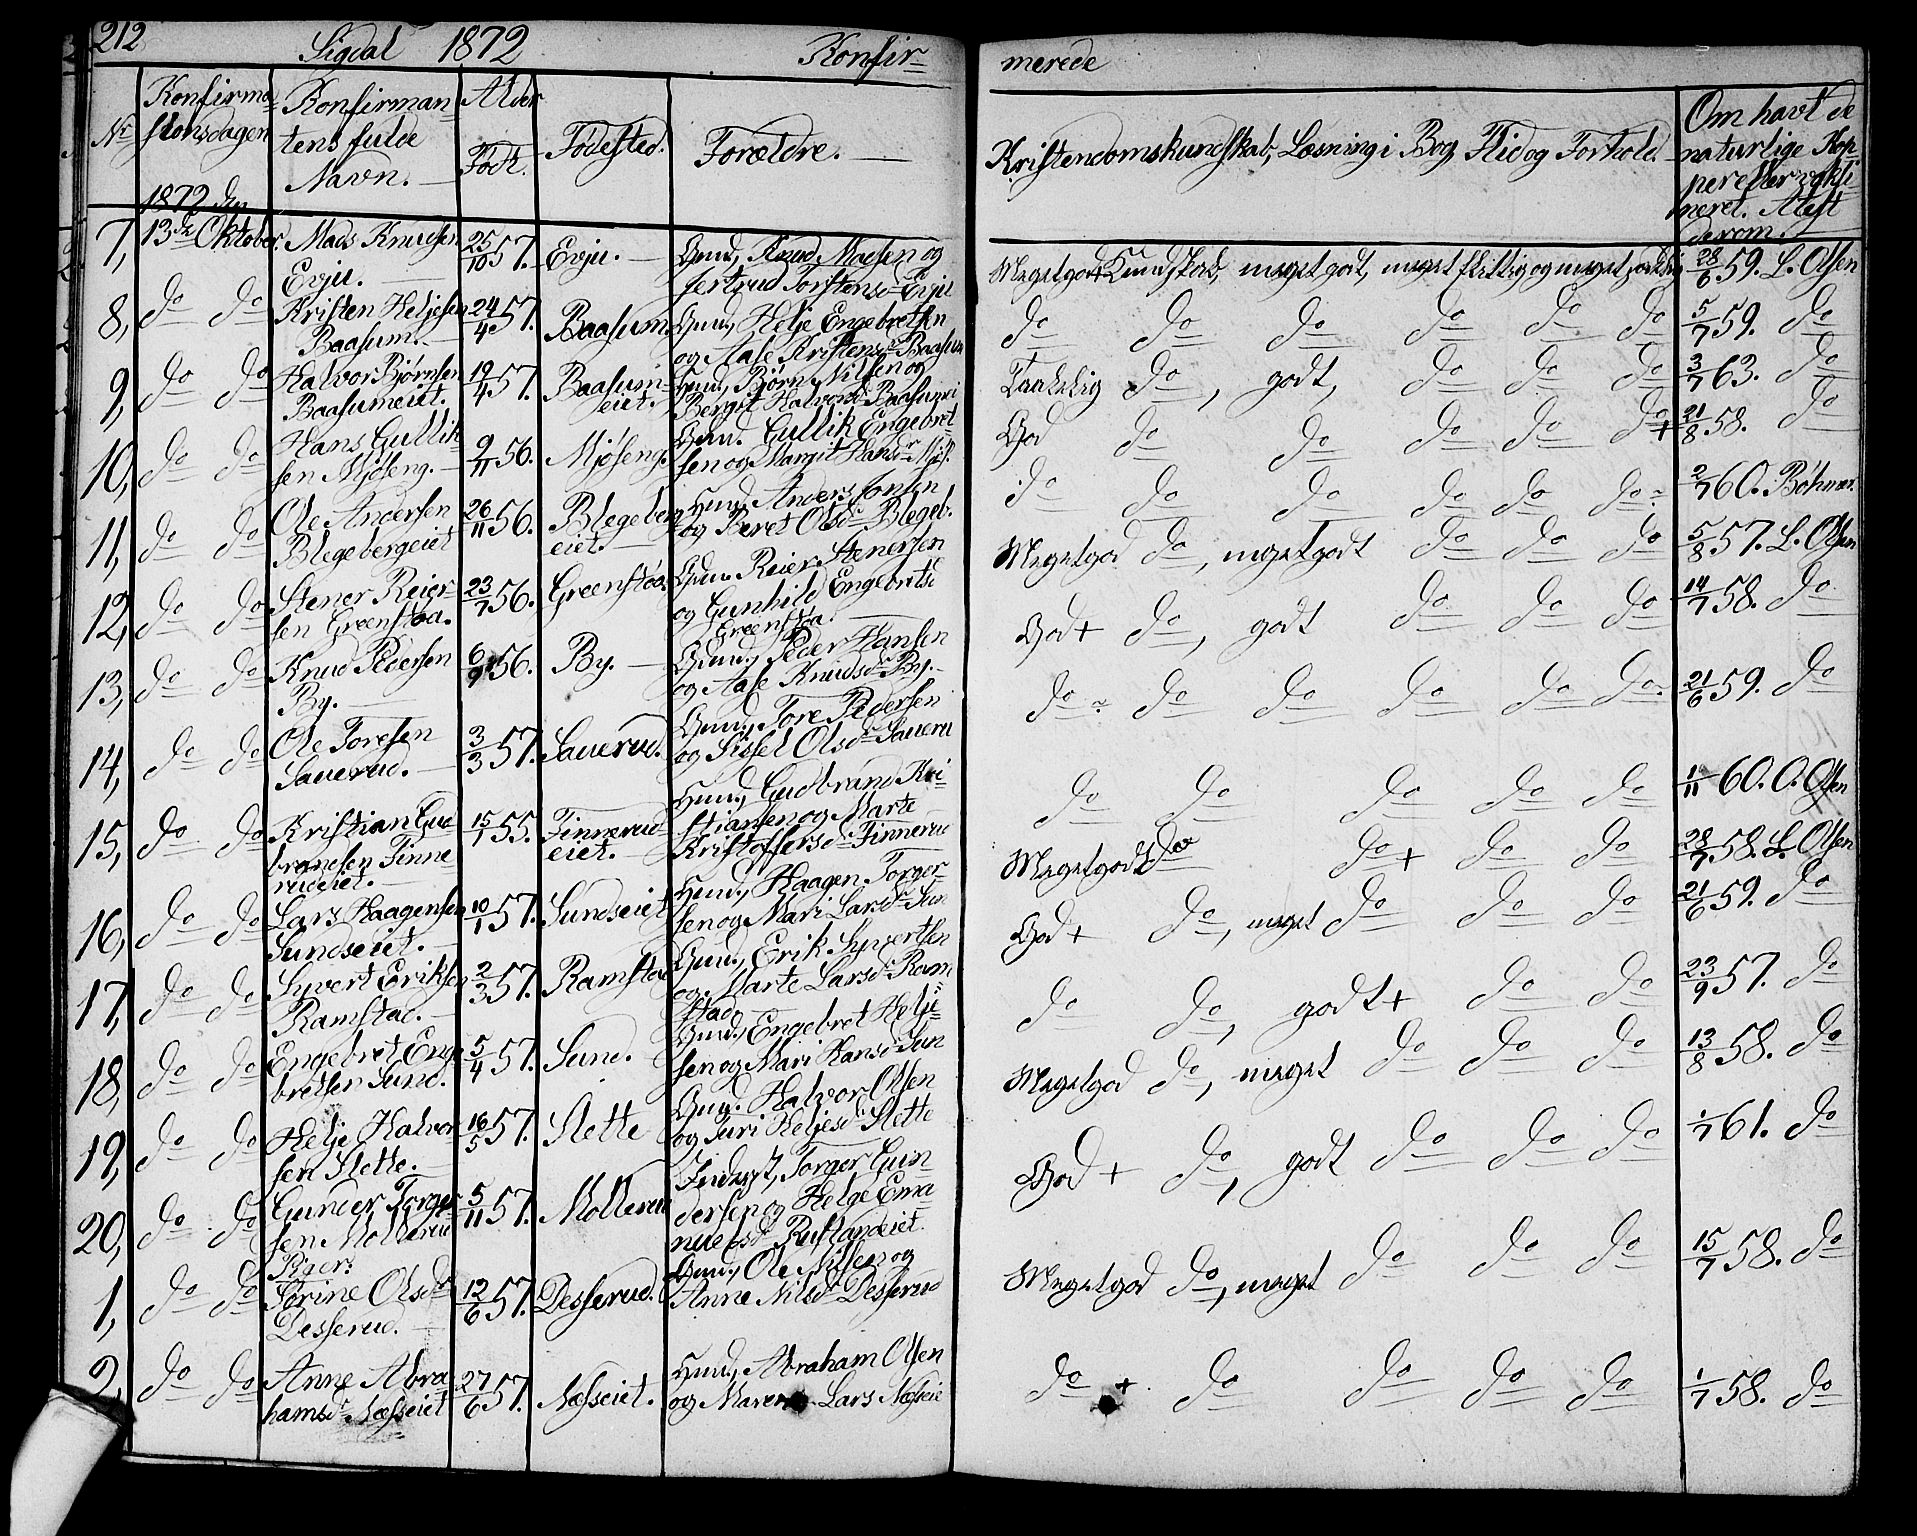 212 Sigdal 1872 Konfir-
merede
Nr
Konfirma-
tionsdagen
1872 den
Konfirman-
tens fulde
Navn.
Alder
Født.
Fødested.
Forældre.
Kristendomskundskab, Læsning i Bog, Flid og Forhold.
Om havt de
naturlige Kop-
per eller vakci-
neret. Attest
derom.
7, 13de Oktober. Mads Knudsen
Evju.
25/10 57. Evju. Gmd, Knud Madsen og
Gertrud Torstensd. Evju
Megetgod Kundskab, meget godt, meget flittig og meget 28/6 59. L. Olsen
8, do do Kristen Heljesen
Baasum.
24/4 57. Baasum. Gmd, Helje Engebretsen
og Aase Kristensd. Baasum
do do do do do do 5/7 59. do
9, do do Halvor Bjørnsen
Baasumeiet.
19/4 57. Baasum-
eiet.
Hmd, Bjørn Nilsen og
Bergit Halvorsd. Baasumei
Taalelig do, godt, do do do 3/7 63. do
10, do do Hans Gullik-
sen Mjøseng.
9/11 56. Mjøseng. Gmd. Gullik Engebret-
sen og Margit Hansdr. Mjø.
God do do do do do 21/8 58. do
11, do do Ole Andersen
Blegebergeiet
26/11 56. Blegeberg
eiet.
Hmd, Anders Jonsen
og Beret Olsdr. Blegeb.
do do do do do do 2/7 60. Bøhmer.
12, do do Stener Reier-
sen Greenstøa.
23/7 56. Greenstøa. Gmd. Reier Stenersen
og Gunhild Engebretsd
Greenstøa.
Megetgod do, megetgodt do do do 5/8 57. L. Olsen
13, do do Knud Pedersen
By.
6/9 56. By. Gmd, Peder Hansen
og Aase Knudsdr. By.
God + do, godt do do do 14/7 58. do
14, do do Ole Toresen
Sauerud.
3/3 57. Sauerud. Gmd, Tore Pedersen
og Sissel Olsdr. Saueru
do do do do do do 21/6 59. do
15, do do Kristian Gud
brandsen Finne
rudeiet.
15/1 55. Finnerud-
eiet.
Hmd, Gudbrand Kri-
stiansen og Marte
Kristoffersd. Finnerud
do do do do do 1/11 60. O. Olsen
16, do do Lars Haagensen
Sundseiet.
10/1 57. Sundseiet Hmd, Haagen Torger-
sen og Mari Larsdr. Sun
Megetgodt do do + do do 28/7 58. L. Olsen
17, do do Syvert Eriksen
Ramstad.
2/3 57. Ramstad Gmd, Erik Syvertsen
og Marte Larsd. Ram
stad
God + do, meget do do do 21/6 59. do
18, do do Engebret Enge
bretsen Sund.
5/4 57. Sund. Gmd, Engebret Helje-
sen og Mari Hansd. Sun
do do, godt + do do 23/9 57. do
19, do do Helje Halvor
sen Slette.
16/5 57. Slette Gmd. Halvor Olsen
og Turi Heljesd. Slette
Megetgod do, meget do do do 13/8 58. do
20, do do Gunder Torger
sen Mollerud
5/11 57. Mollerud Inderst, Torger Gun-
dersen og Helge Ema-
nuelsd. Rustandeiet.
God + do, godt do do do 1/7 61. do
Piger.
1, do do Torine Olsdr.
Desserud.
12/6 57. Desserud. Gmd, Ole Nilsen og
Anne Nilsd. Desserud
Megetgod do, meget do do do 15/7 58. do
2, do do Anne Abra
hamsdr. Næsseiet
27/6 57. Næsseiet. Hmd, Abraham Olsen
og Maren Lars Næsseie
do + do do do do 1/7 58. do